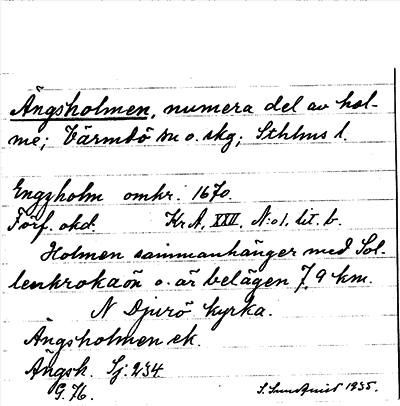 Ängsholmen, numera del av hol-
me; Värmdö sn o. skg; Sthlms l.
Engzholm omkr. 1670.
Förf. okd. Kr A, XXII, N:o 1, lit. b.
Holmen sammanhänger med Sol-
lenkrokaön o. är belägen 7,9 km.
N Djurö kyrka.
Ängsholmen ek.
Ängsh. Sj: 234
G. 76.
S. Sundquist 1935.